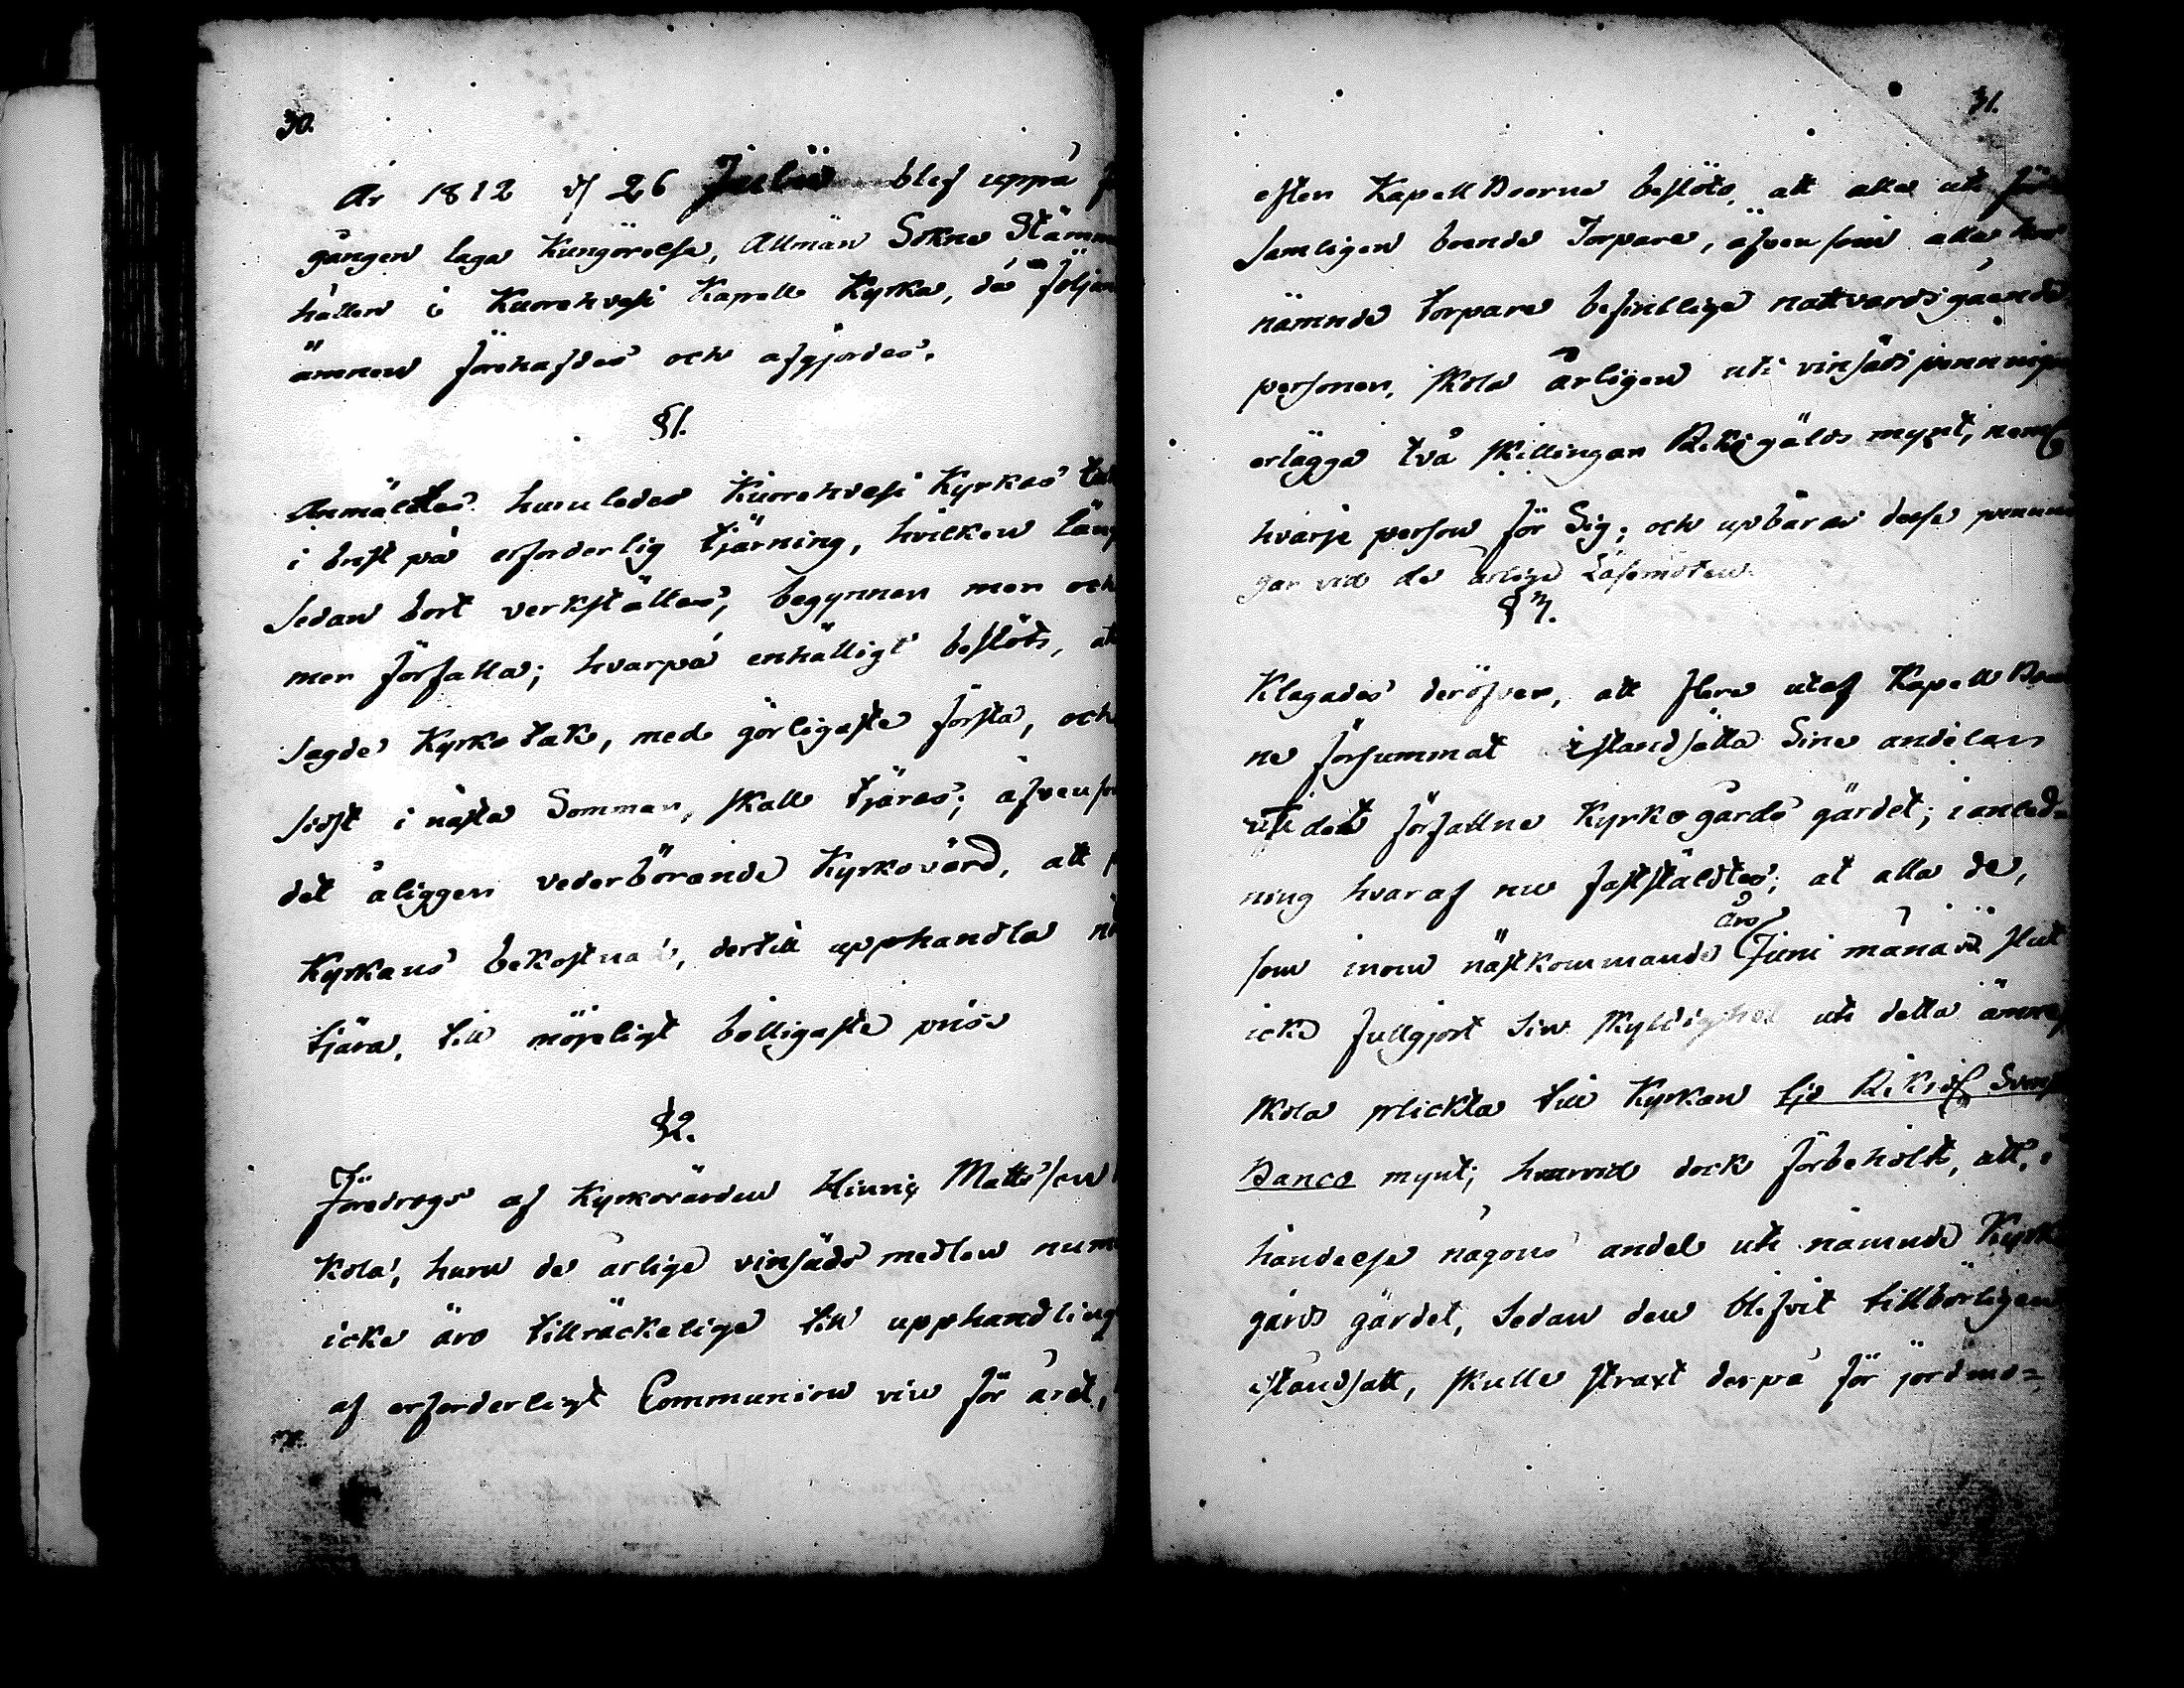 30.
År 1812 d/ 26 Julii blef uppå
gången laga Kungörelse, Allmän Sokne Stämm
hållen i Kuorehvesi Kapell Kyrka, då följan
ämnen förehafdes och afgjordes.
§1.
Anmältes huruledes Kuorehvesi Kyrkas tak
i brist på erforderlig tjärning, hvilken läng
sedan bort verkställas, begynner mer och
mer förfalla; hvarpå enhälligt beslöts, at
sagde Kyrko tak, med görligaste första, och
sidst i nästa Sommar, skall tjäras; äfven so
det åligger vederbörande Kyrkovärd, att
Kyrkans bekostnad, dertill upphandla
tjära, till möjeligt billigaste pris
§2.
Föredrogs af Kyrkovärden Hinric Mattsson
Kola, huru de årlige vinsäds medlen num
icke äro tillräckelige till upphandling
af erforderligt Communion vin för året,
31.
efter KapellBoerne beslöts, att alla uti för
samligen boende Torpare, äfvensom alla hos
nämnde torpare befintlige nattvardsgående
personer, skola årligen uti vinsäds penningar
erlägga två skillingar Riksgälds mynt, neml
hvarje person för Sig; och upbäras desse pennin
gar vid de årlige Läsemöten.
§3.
Klagades deröfver, att flere utaf KapellBoer
ne försummat iståndsätta Sine andelar
uti det förfallne Kyrkogårds gärdet; i anled-
ning hvaraf nu fastställdtes; at alla de,
som inom nästkommande års Juni månads slut
icke fullgjort Sin skyldighet uti detta ämne,
skola plickta till Kyrkan tjo Riksd Svensk
Banco mynt; hvarvid dock förbehölts, att, i
händelse någons andel uti nämnde Kyrko
gårds gärdet, Sedan den blifvit tillbörligen
iståndsatt, skulle straxt derpå för jordmo=